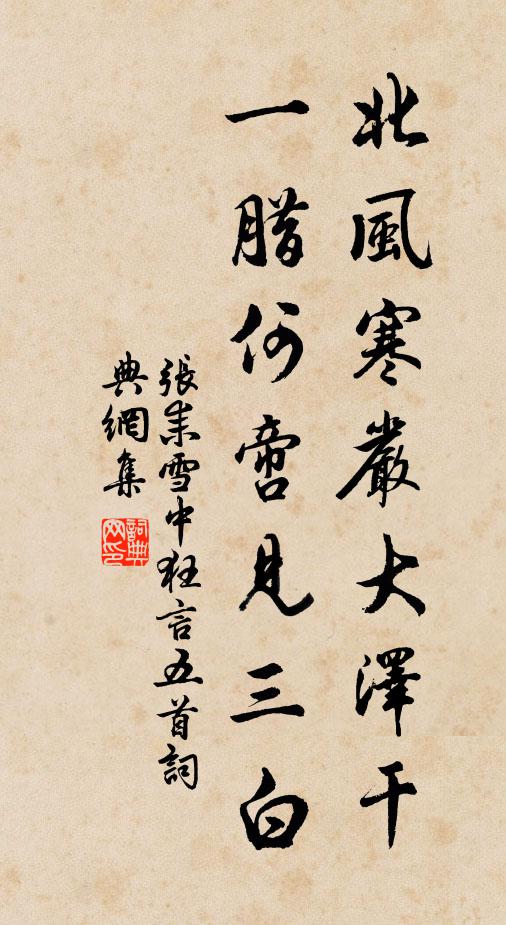 北風寒嚴大澤干
一腊何啻見三白
張耒雪中狂言五首詞
典網集
詞典網印